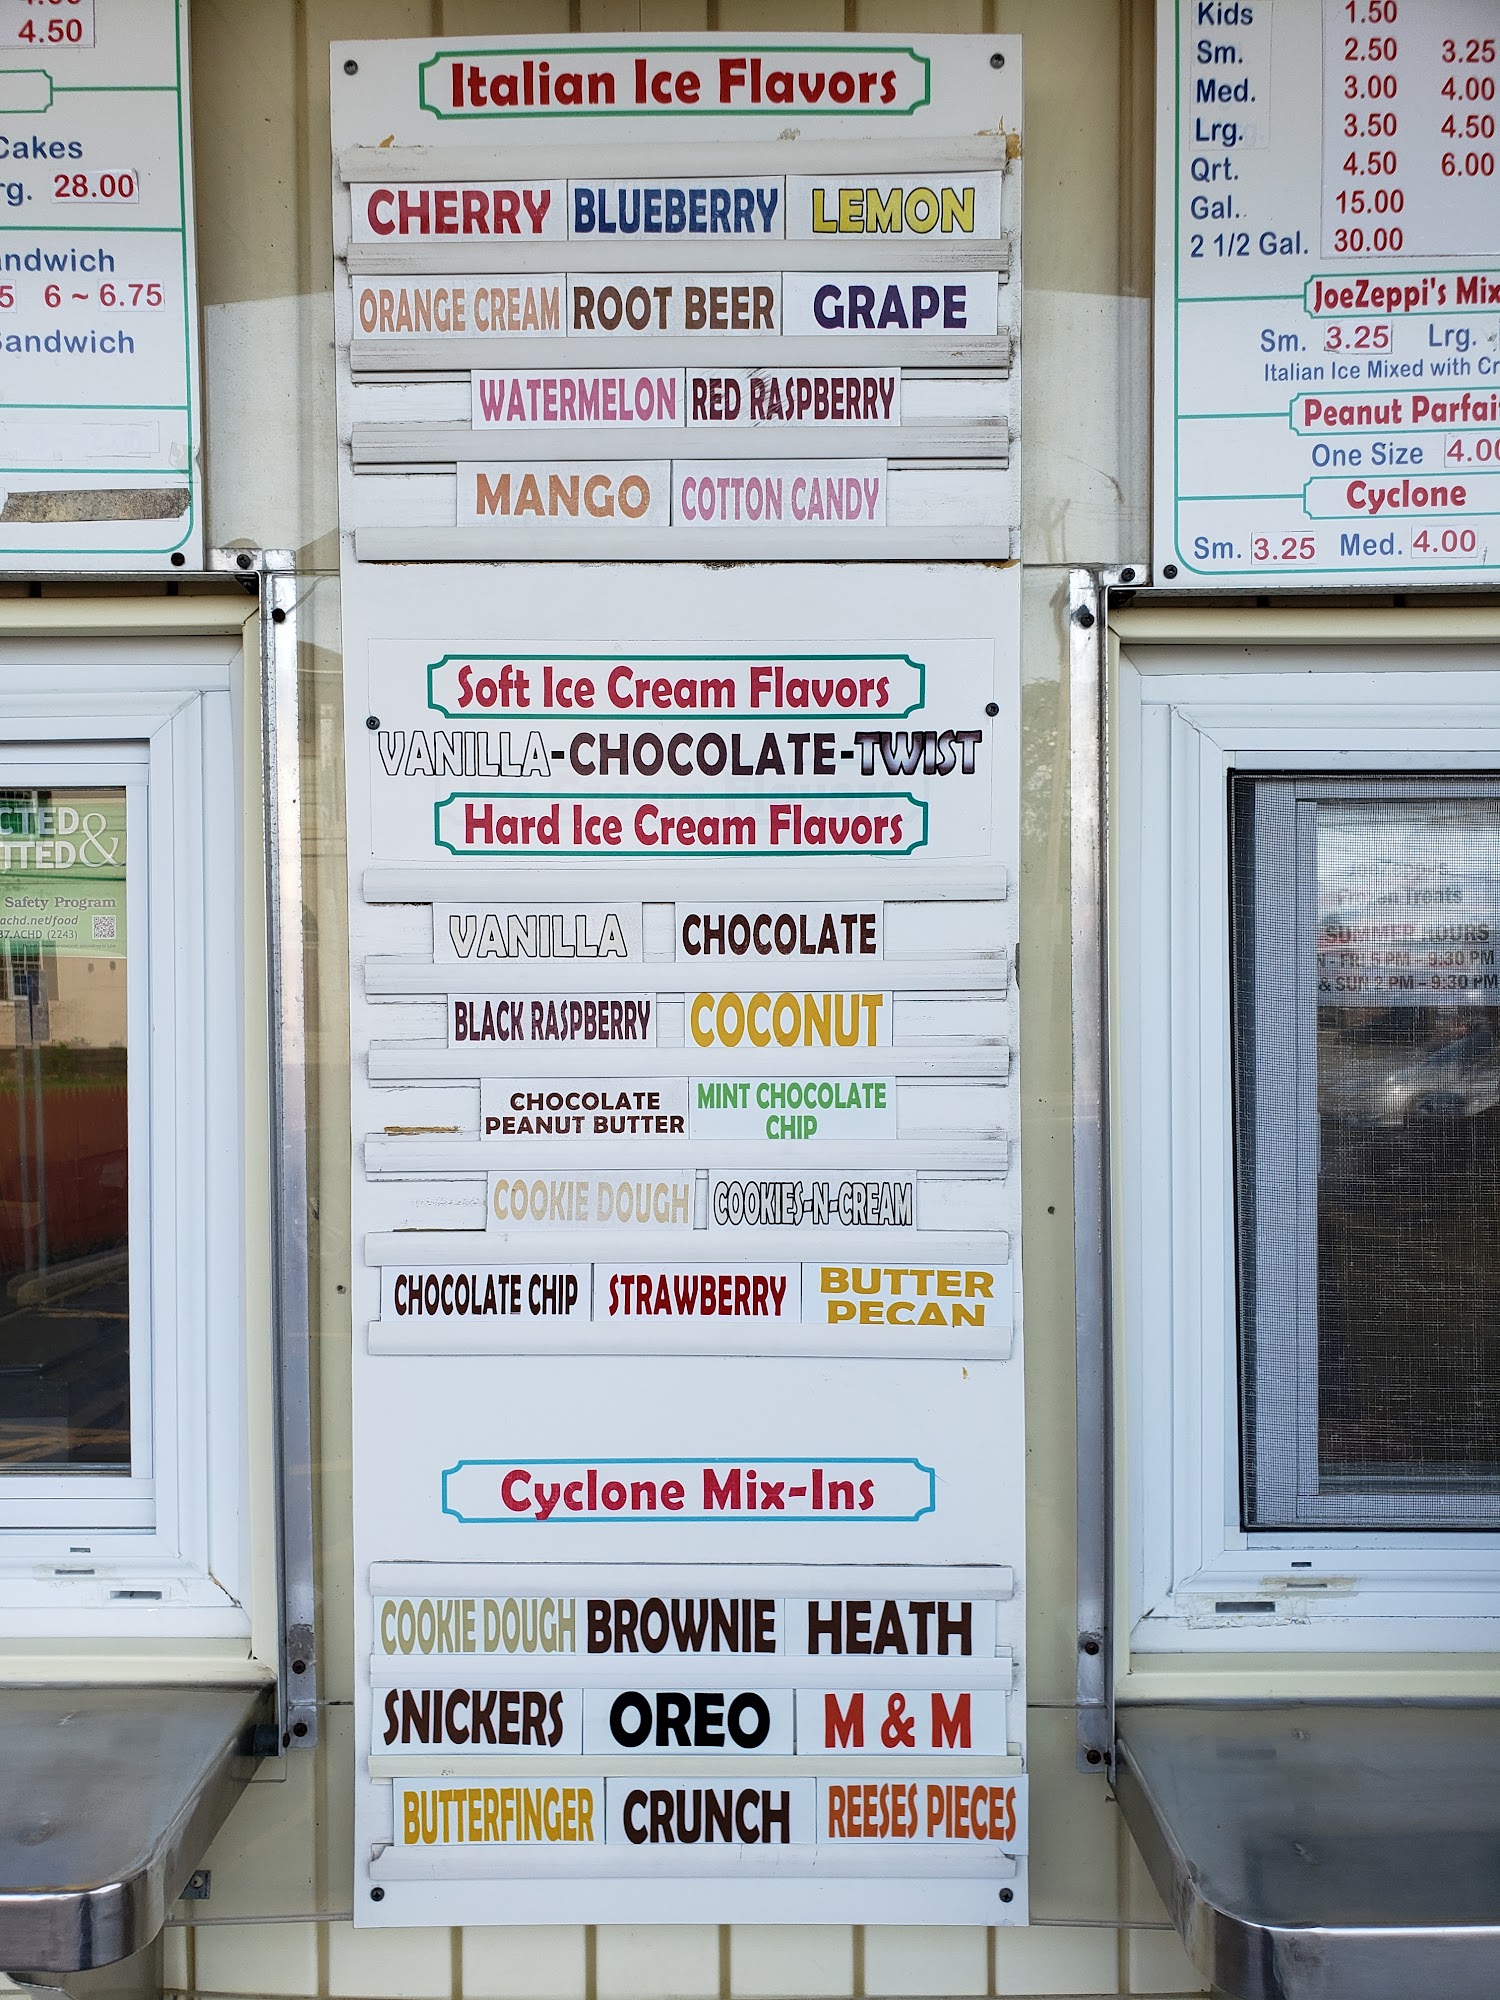 4.50
Cakes
28.00
6 ~ 6.75
Italian Ice Flavors
CHERRY BLUEBERRY LEMON
ORANGE CREAM ROOT BEER GRAPE
WATERMELON RED RASPBERRY
MANGO COTTON CANDY
Soft Ice Cream Flavors
VANILLA-CHOCOLATE-TWIST
Hard Ice Cream Flavors
VANILLA CHOCOLATE
BLACK RASPBERRY COCONUT
CHOCOLATE PEANUT BUTTER
MINT CHOCOLATE CHIP
COOKIE DOUGH COOKIES-N-CREAM
CHOCOLATE CHIP STRAWBERRY BUTTER PECAN
Cyclone Mix-Ins
COOKIE DOUGH BROWNIE HEATH
SNICKERS OREO M & M
BUTTERFINGER CRUNCH REESES PIECES
Kids 1.50
Sm. 2.50 3.25
Med. 3.00 4.00
Lrg. 3.50 4.50
Qrt. 4.50 6.00
Gal. 15.00
2 1/2 Gal. 30.00
JoeZeppi's Mix
Sm. 3.25 Lrg.
Italian Ice Mixed with
Peanut
One Size 4.00
Cyclone
Sm. 3.25 Med. 4.00
&
Safety Program
achd.net/food
ACHD (2243)
Treats
SUMMER HOURS
FRI 5 PM - 9:30 PM
& SUN 2 PM - 9:30 PM